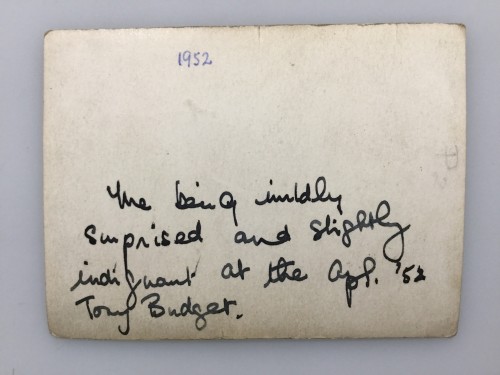 1952
Me being mildly
surprised and slightly
indignant at the Apl. '52
Tory Budget.